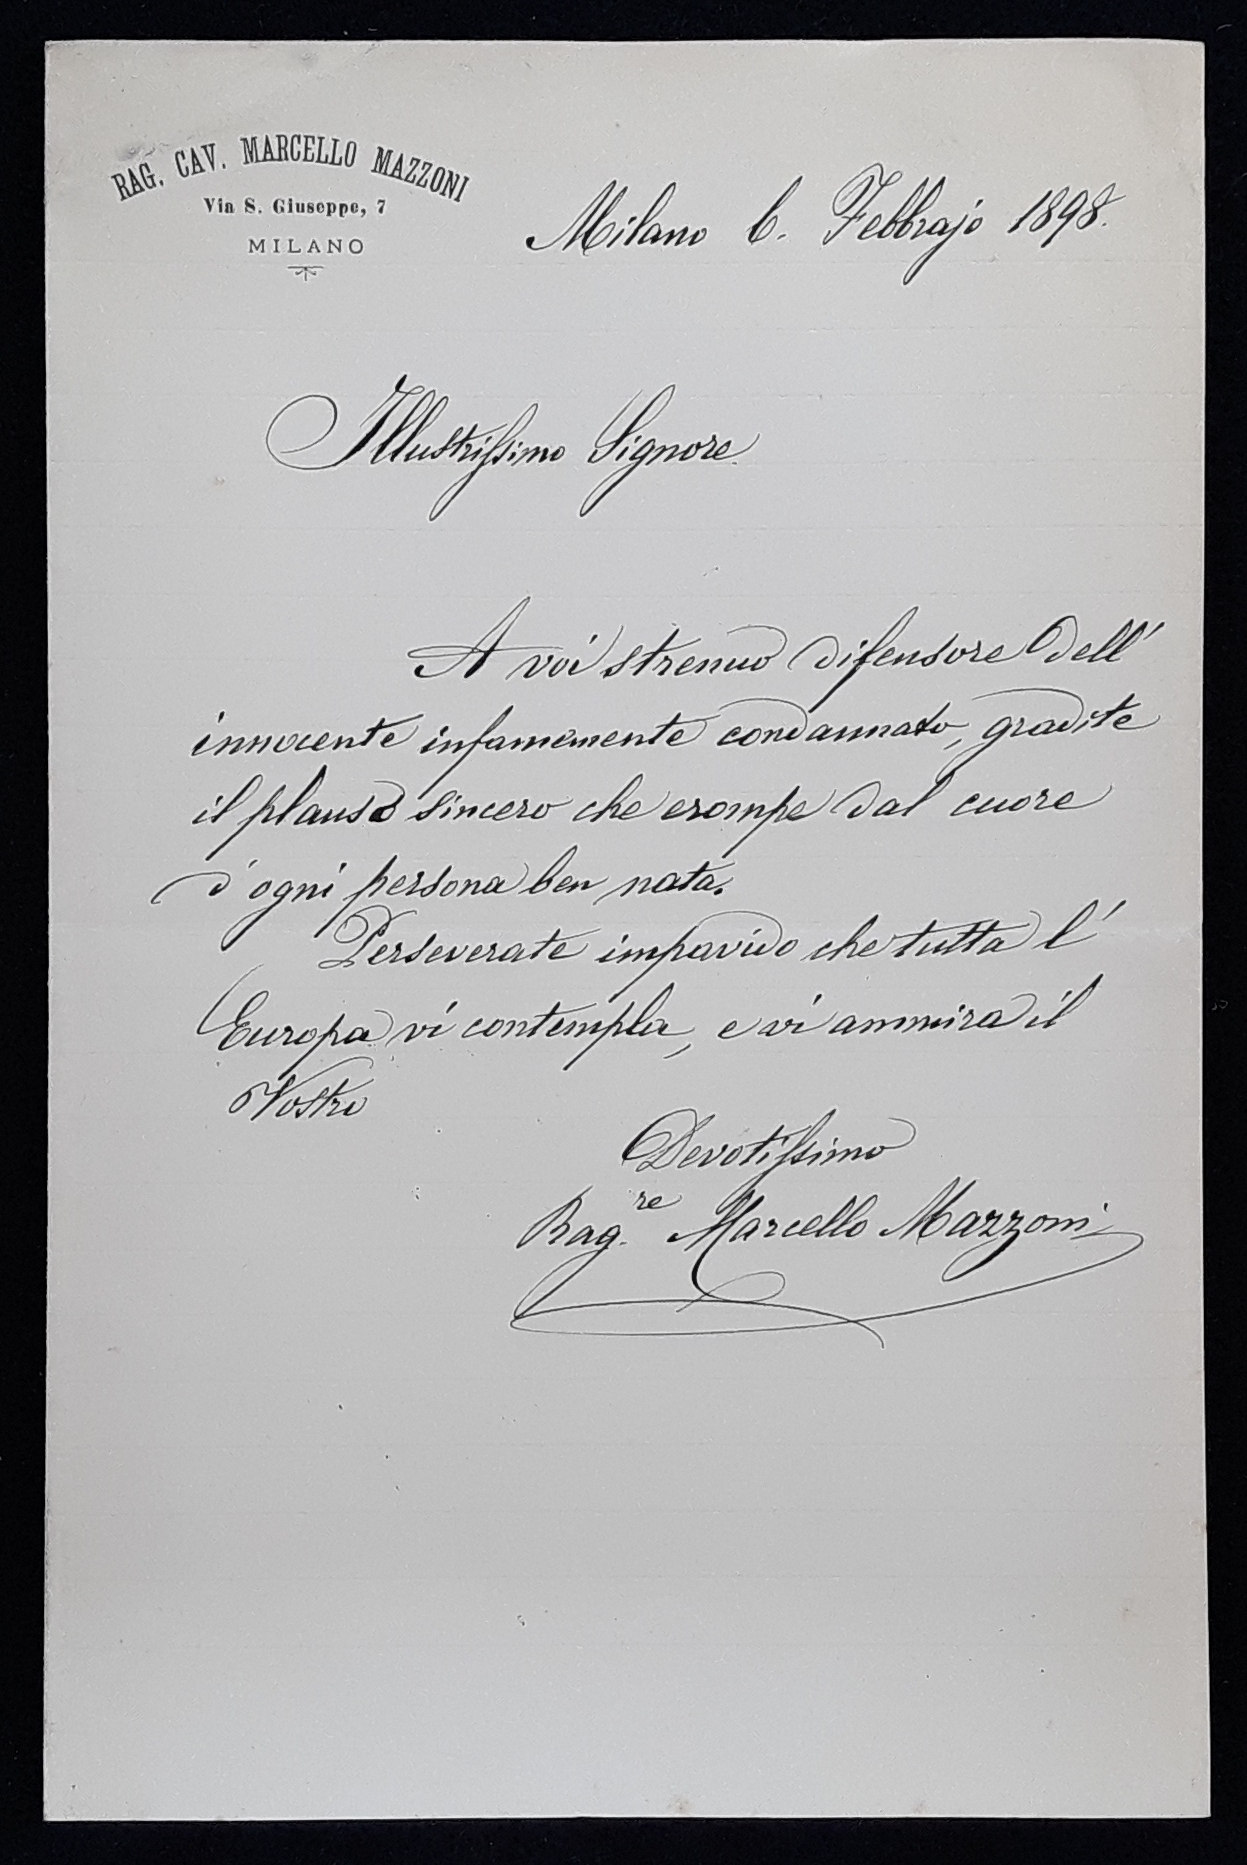 RAG. CAV. MARCELLO MAZZONI
Via S. Giuseppe, 7
MILANO
Milano 6. Febbrajo 1898.
Illustrissimo Signore.
A voi strenuo difensore dell'
innocente infamemente condannato, gradite
il plauso sincero che erompe dal cuore
d'ogni persona ben nata.
Perseverate impavido che tutta l'
Europa vi contempla, e vi ammira il
Vostro
Devotissimo
Rag.re Marcello Mazzoni